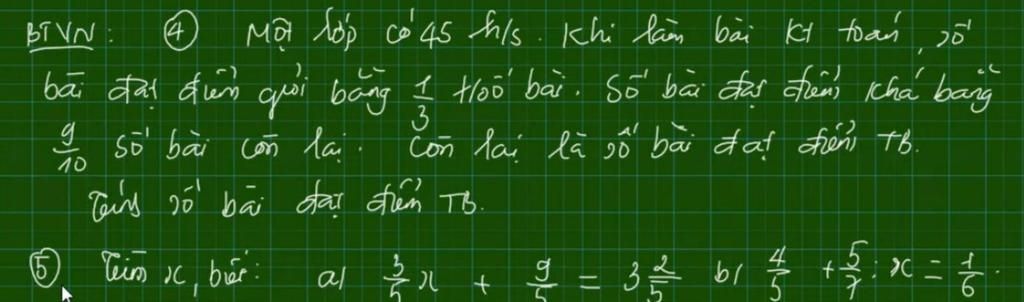 BTVN: ④ Một lớp có 45 h/s. Khi làm bài KT toán, số
bài đạt điểm giỏi bằng 1/3 t/số bài. Số bài đạt điểm khá bằng
9/10 số bài còn lại. Còn lại là số bài đạt điểm TB.
Tính số bài đạt điểm TB.
⑤ Tìm x, biết: a) 3/5 x + 9/5 = 3 2/5 b) 4/5 + 5/7 : x = 1/6.